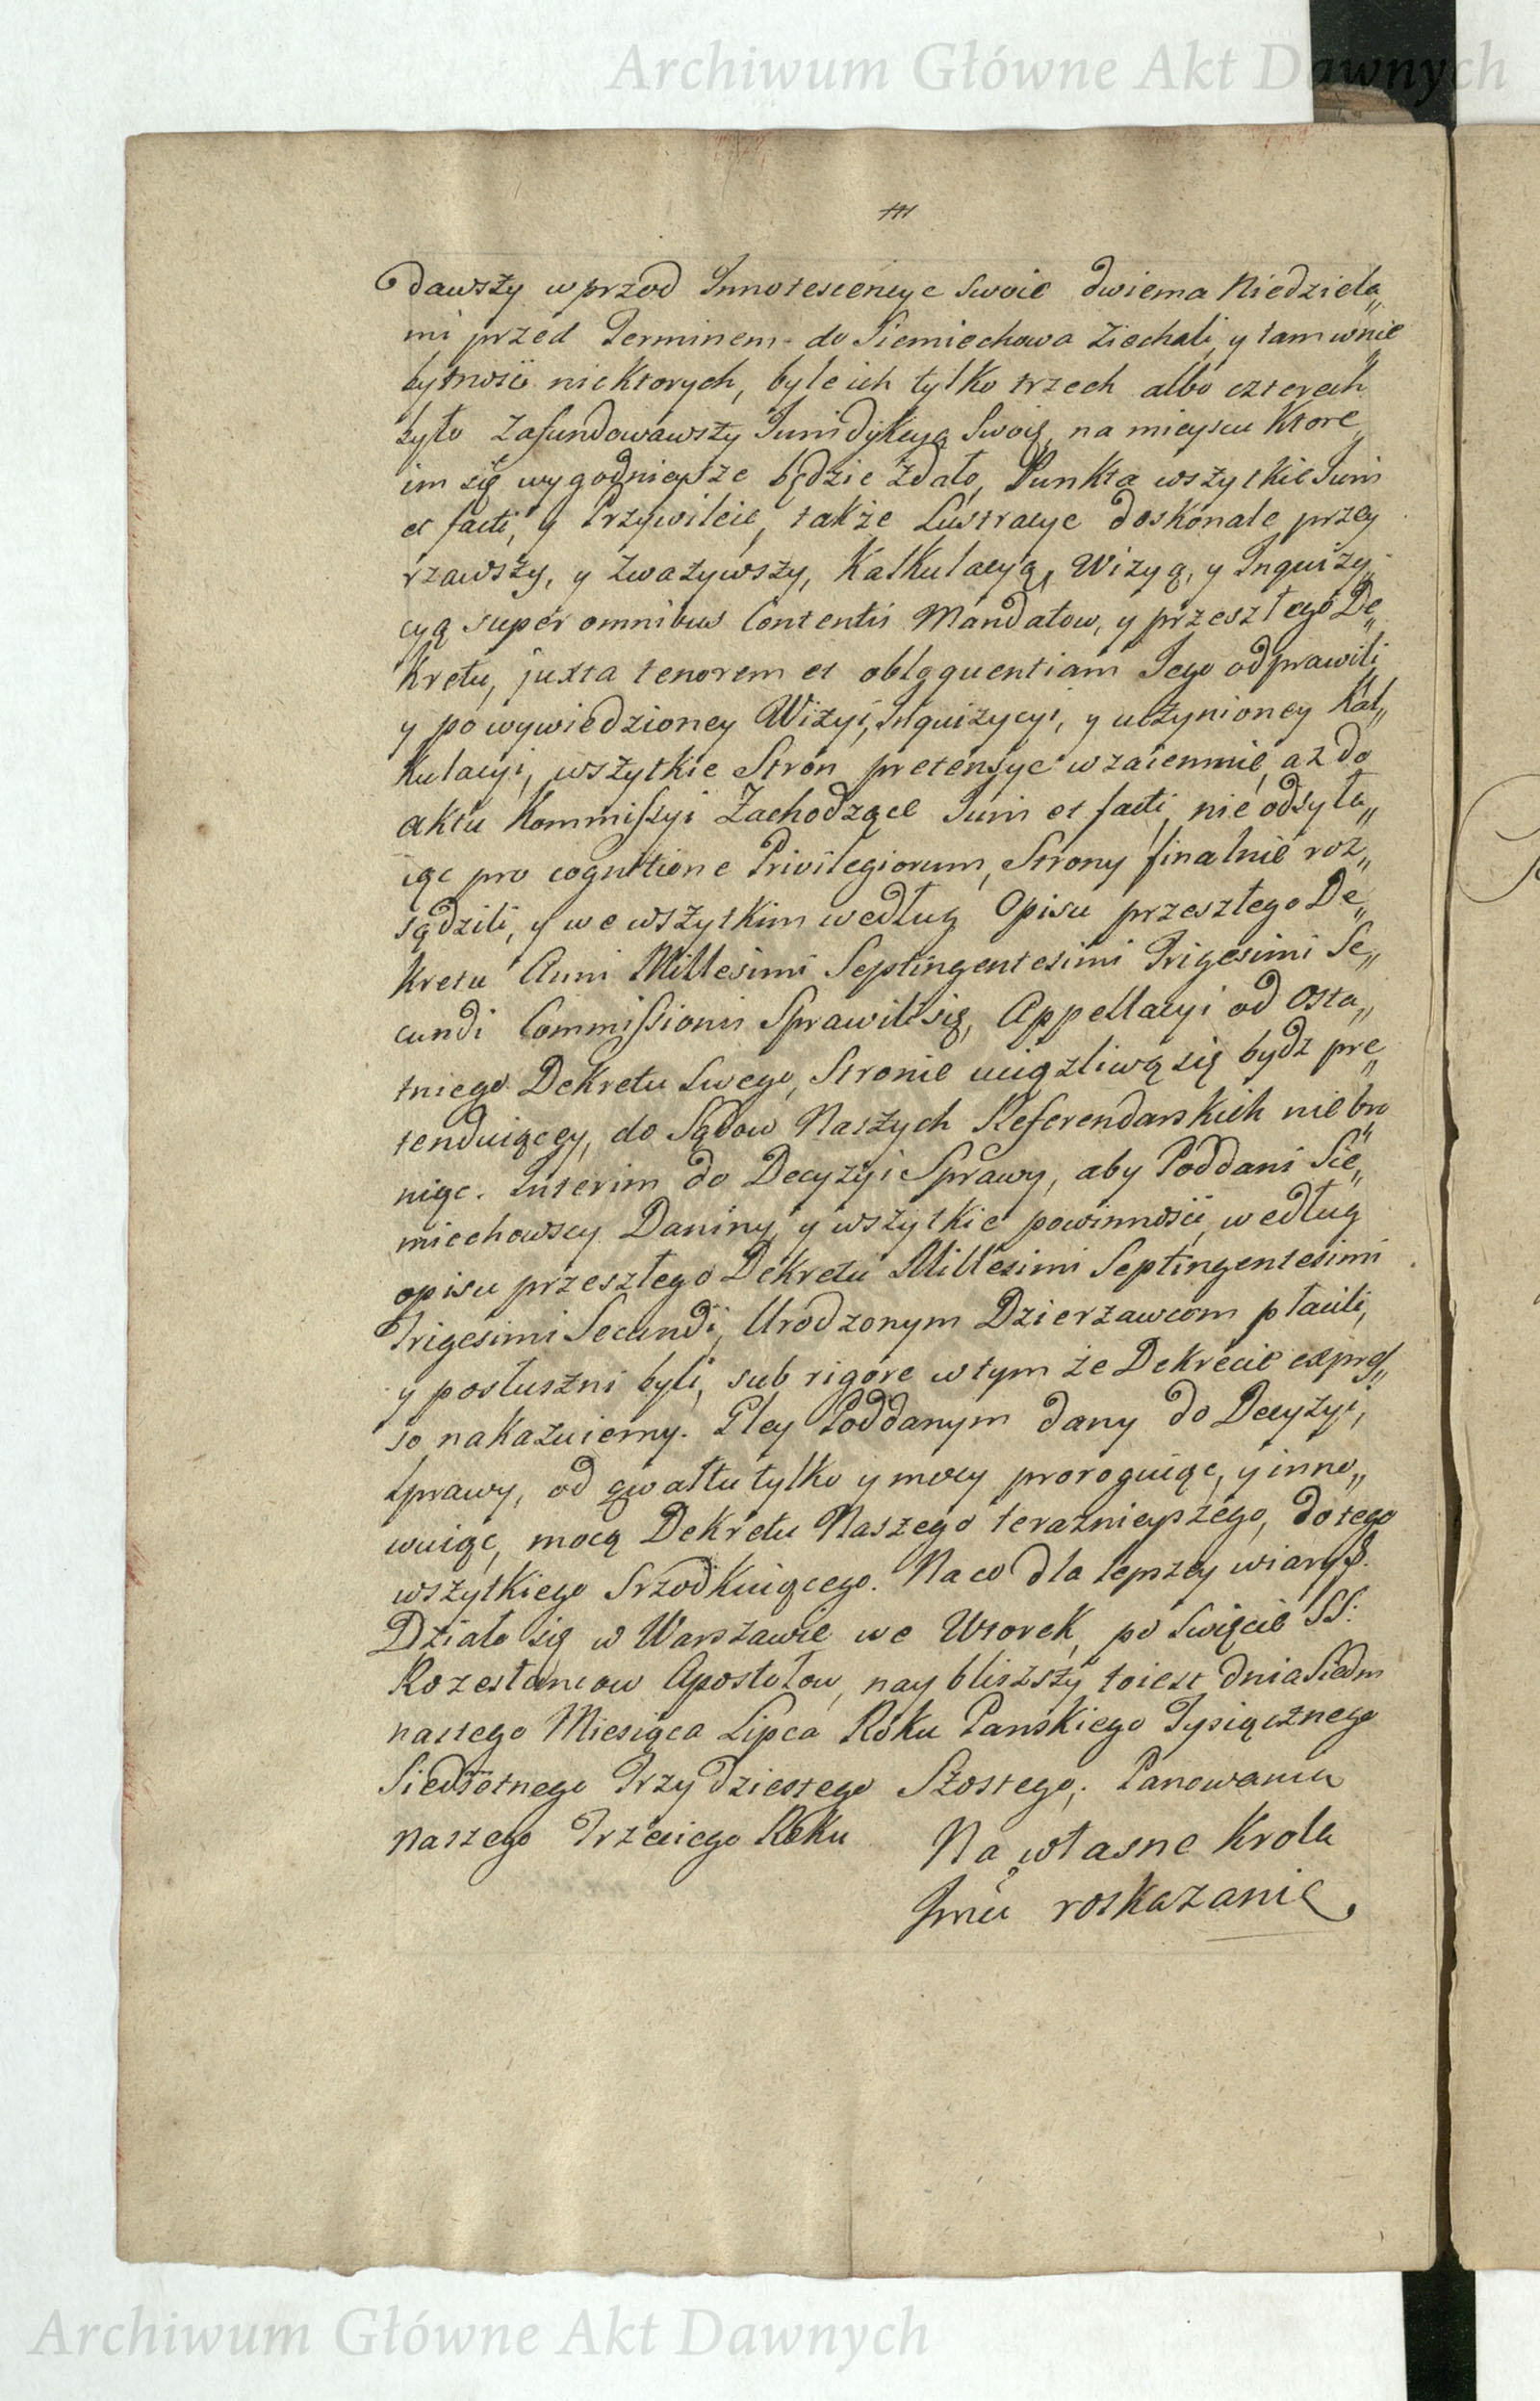 Archiwum Główne Akt Dawnych
dawszy wprzod Innotescencye swoie dwiema Niedziela„
mi przed Terminem do Siemiechowa ziechali, y tam wnie„
bytności niektorych, byle ich tylko trzech albo czterech
było Zafundowawszy Jurisdykcyą Swoię, na mieyscu Ktore
im się wygodnieysze będzie zdało, Punkta wszytkie Juris
et facti, y Przywileie, także Lustracye doskonale przey
rzawszy, y zważywszy, Kalkulacyą, Wizyą, y Inquizy„
cyą super omnibus Contentis Mandatow, y przeszłego De„
kretu, juxta tenorem et obloquentiam Jego odprawili
y po wywiedzioney Wizyi, Inquizycyi, y uczynioney Kal„
kulacyi, wszytkie Stron pretensye wzaiemnie, aż do
aktu Kommissyi Zachodzące Juris et facti, nie odsyła„
iąc pro cognitione Privilegiorum, Strony finalnie roz„
sądzili, y we wszytkim według Opisu przeszłego De„
kretu Anni Millesimi Septingentesimi Trigesimi Se„
cundi Commissionis Sprawili się, Appellacyi od Osta„
tniego Dekretu Swego, Stronie uciążliwą się bydz pre„
tenduiącey, do Sądow Naszych Referendarskich nie bro„
niąc. Interim do Decyzyi Sprawy, aby Poddani Sie„
miechowscy Daniny y wszytkie powinności, według
opisu przeszłego Dekretu Millesimi Septingentesimi
Trigesimi Secundi, Urodzonym Dzierzawcom płacili,
y posłuszni byli, sub rigore w tym że Dekrecie expres„
so nakazuiemy. Gley Poddanym dany do Decyzyi,
Sprawy, od gwałtu tylko y mocy proroguiąc, y inno„
wuiąc, mocą Dekretu Naszego teraznieyszego, do tego
wszytkiego Srzodkuiącego. Na co dla lepszey wiary
Działo się w Warszawie we Wtorek, po Swięcie SS:
Rozesłancow Apostołow, nay bliższy to iest dnia Siedm
nastego Miesiąca Lipca Roku Pańskiego Tysiącznego
Siedsetnego Trzydziestego Szostego; Panowania
naszego Trzeciego Roku
Na własne Krola
Jmci roskazanie
Archiwum Główne Akt Dawnych